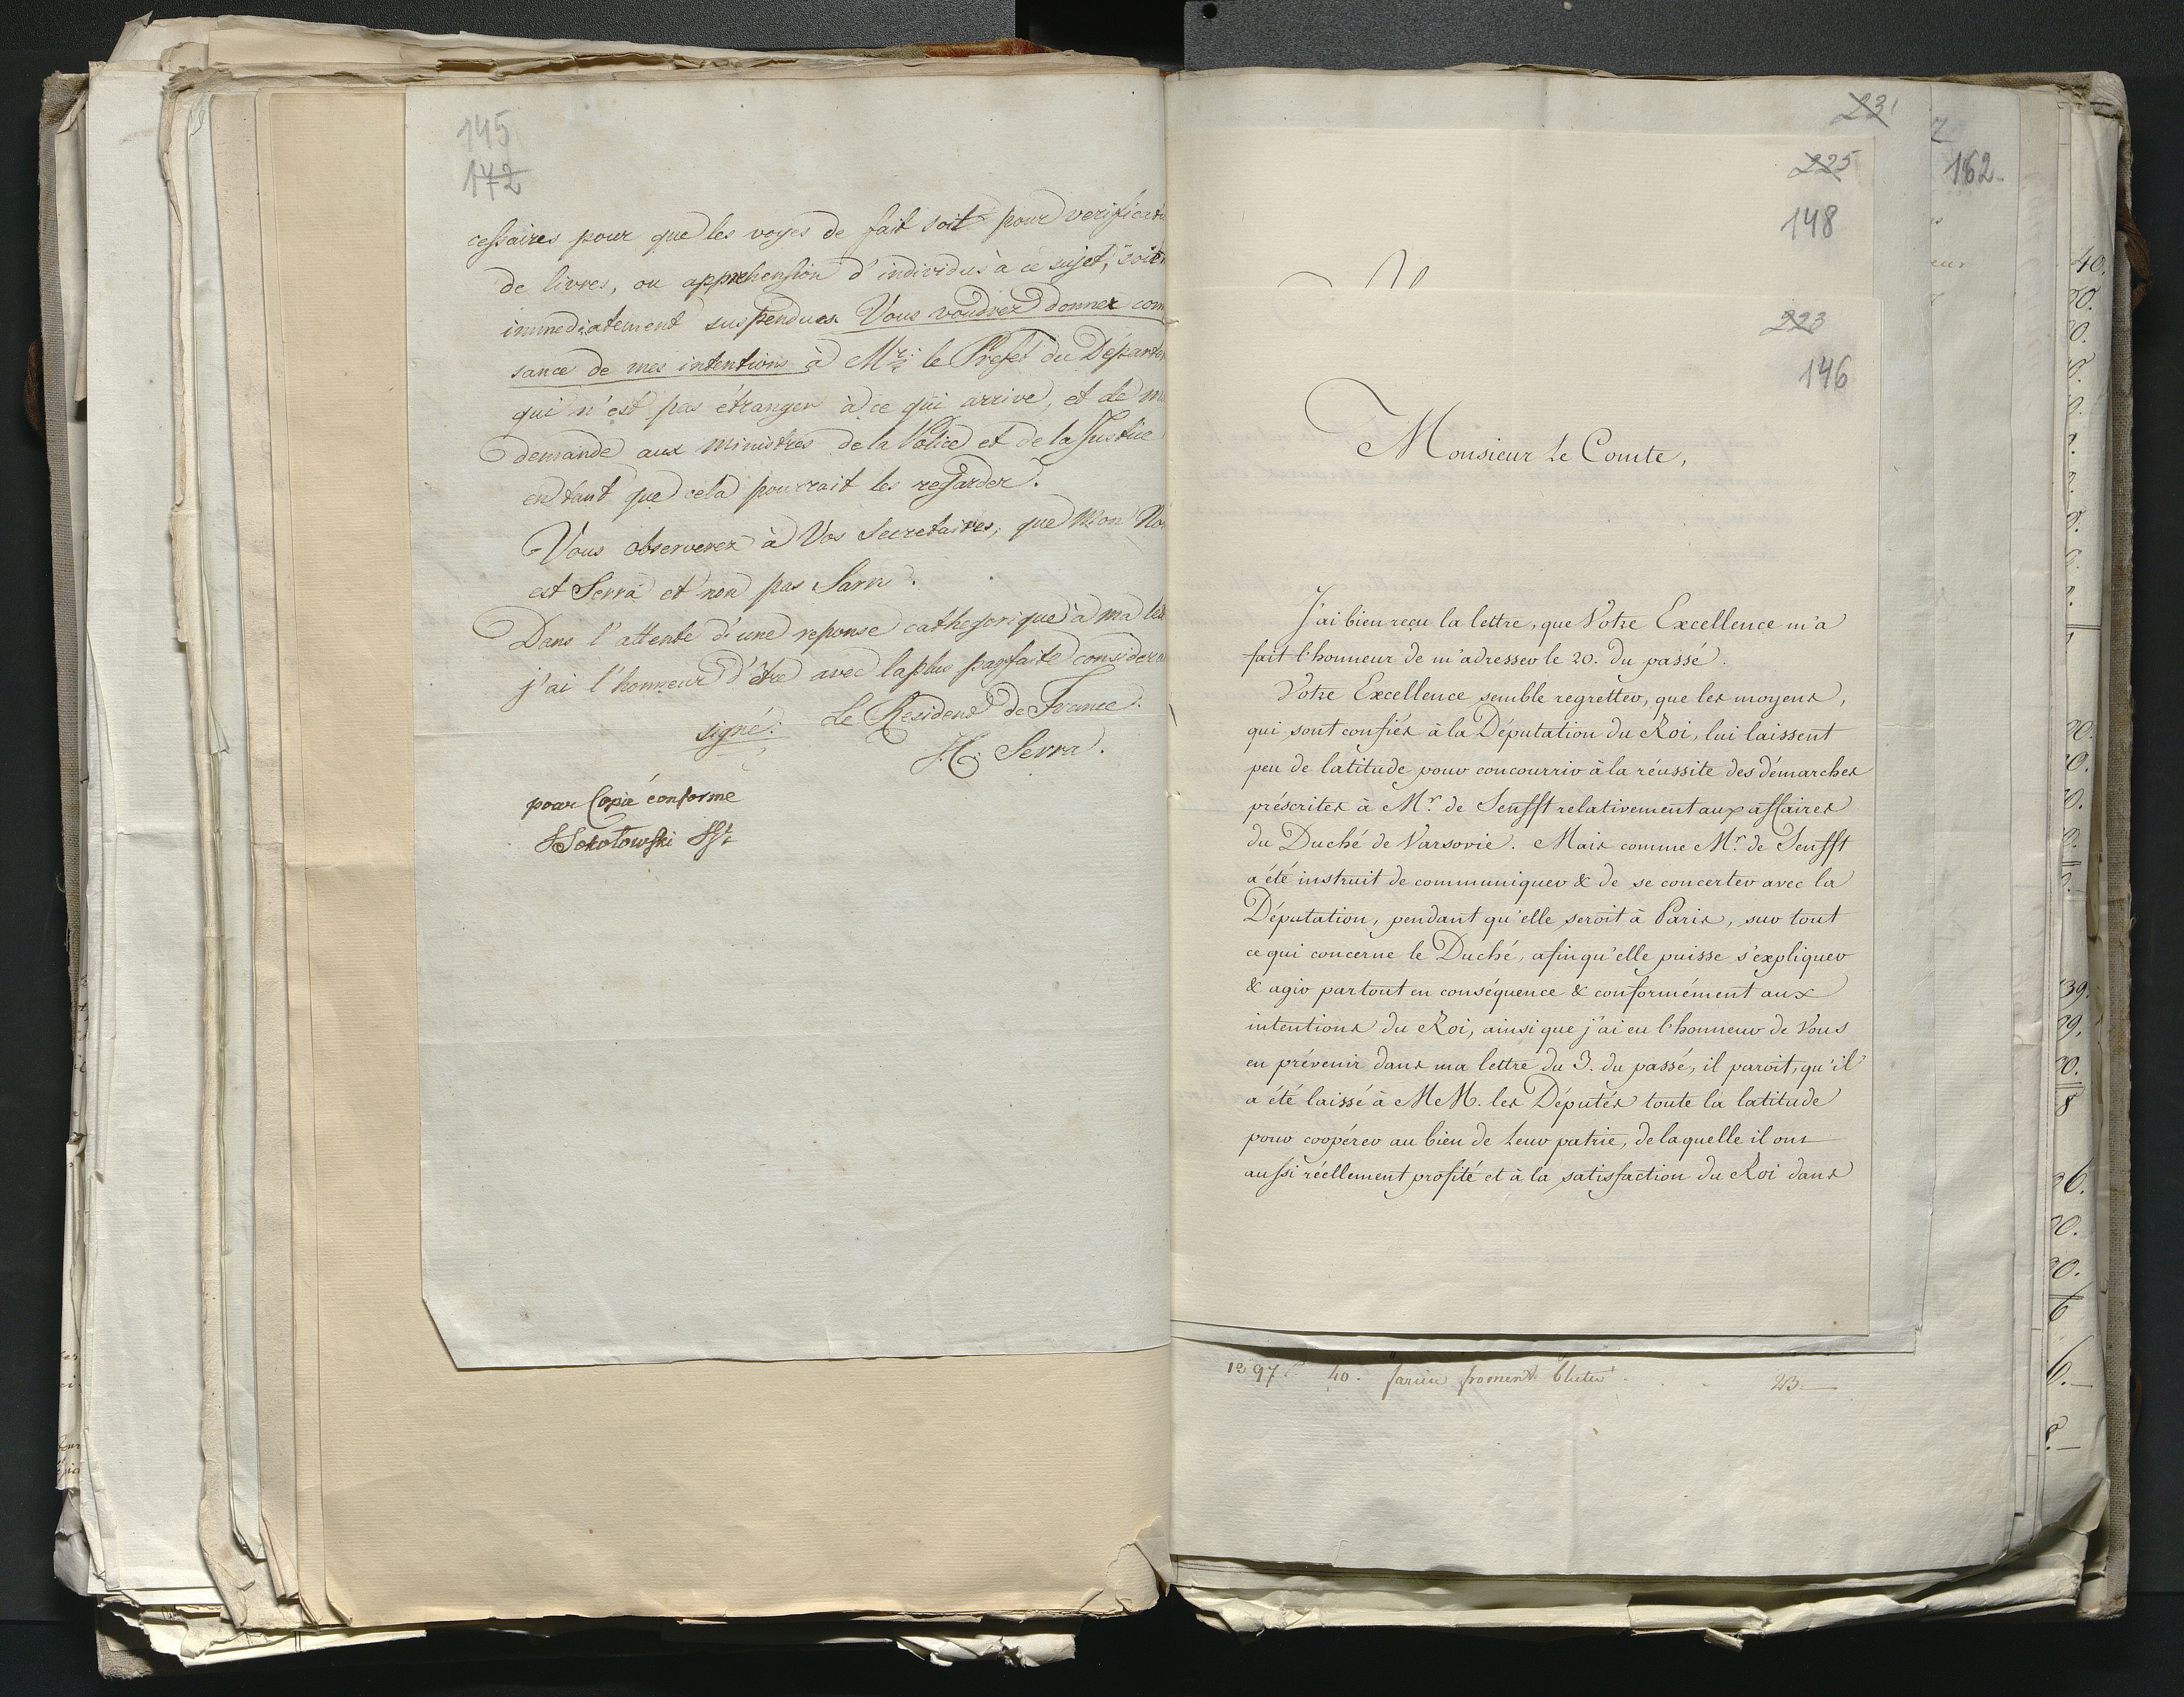 145
172
cessaires pour que les voyes de fait soit pour verificati
de livres, ou apprehension d'individus à ce sujet, soien
immediatement suspendues. Vous voudrez donner con
sance de mes intentions à Mr. le Prefet du Départe
qui n'est pas étranger à ce qui arrive, et de m
demande aux Ministres de la Police et de la Justice
en tant que cela pourrait les regarder.
Vous observerez à Vos Secretaires, que Mon No
est Serra et non pas Sarra.
Dans l'attente d'une reponse cathegorique à ma let
j'ai l'honneur d'être avec la plus parfaite considera
signé: Le Resident de France.
H. Serra.
pour Copie conforme
Sokołowski
231
225
148
223
146
162
Monsieur le Comte,
J'ai bien reçu la lettre, que Votre Excellence m'a
fait l'honneur de m'adresser le 20. du passé.
Votre Excellence semble regretter, que les moyens,
qui sont confiés à la Députation du Roi, lui laissent
peu de latitude pour concourrir à la réussite des démarches
préscrites à Mr. de Senfft relativement aux affaires
du Duché de Varsovie. Mais comme Mr. de Senfft
a été instruit de communiquer & de se concerter avec la
Députation, pendant qu'elle seroit à Paris, sur tout
ce qui concerne le Duché, afin qu'elle puisse s'expliquer
& agir partout en conséquence & conformément aux
intentions du Roi, ainsi que j'ai eu l'honneur de Vous
en prévenir dans ma lettre du 3. du passé, il paroit, qu'il
a été laissé à MM. les Députés toute la latitude
pour coopérer au bien de leur patrie, de laquelle il ont
aussi réellement profité et à la satisfaction du Roi dans
1297 40. farine froment 23